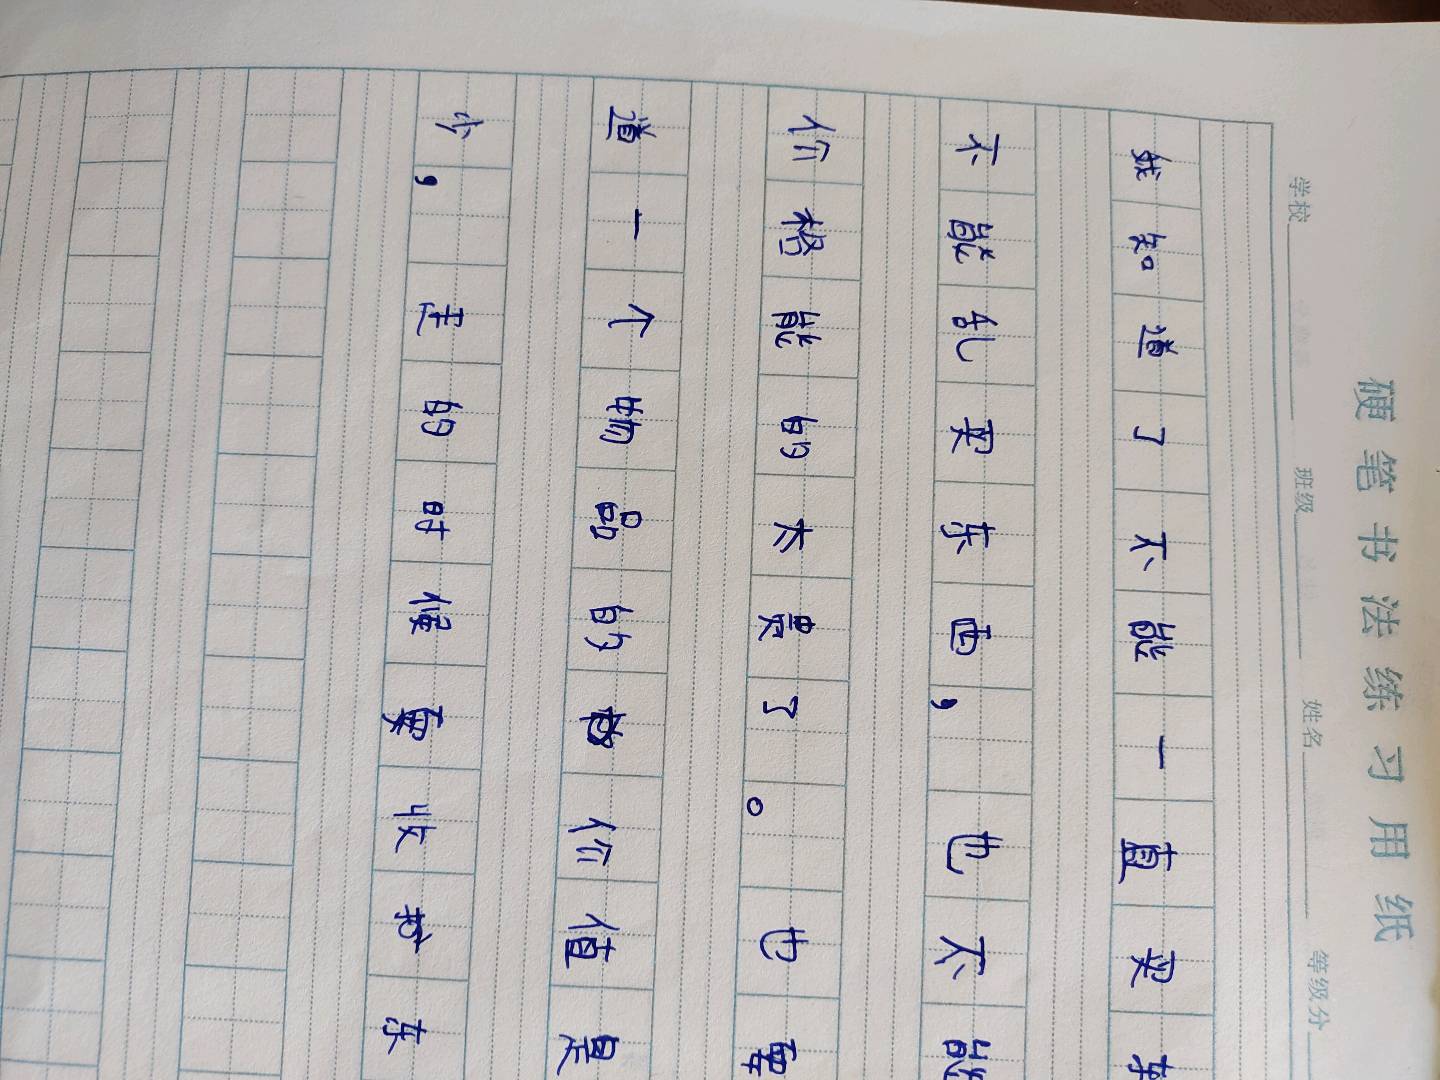 硬笔书法练习用纸
学校 班级 姓名 等级分
我知道了不能一直买
不能乱买东西，也不能
价格能的太贵了。也要
道一个物品的价值是
少，走的时候要收拾东